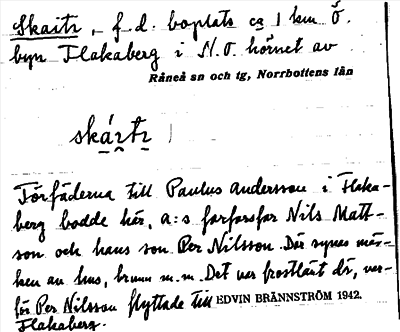 Skaitr, f. d. boplats ca 1 km Ö.
byn Flakaberg i N.O. hörnet av
Råneå sn och tg, Norrbottens län
skái̯tr
Förfäderna till Paulus Andersson i Flaka-
berg bodde här, A:s farfarsfar Nils Matt-
son och hans son Per Nilsson. Där synes mär-
ken av hus, brunn m.m. Det var frostlänt där, var-
för Per Nilsson flyttade till EDVIN BRÄNNSTRÖM 1942.
Flakaberg.